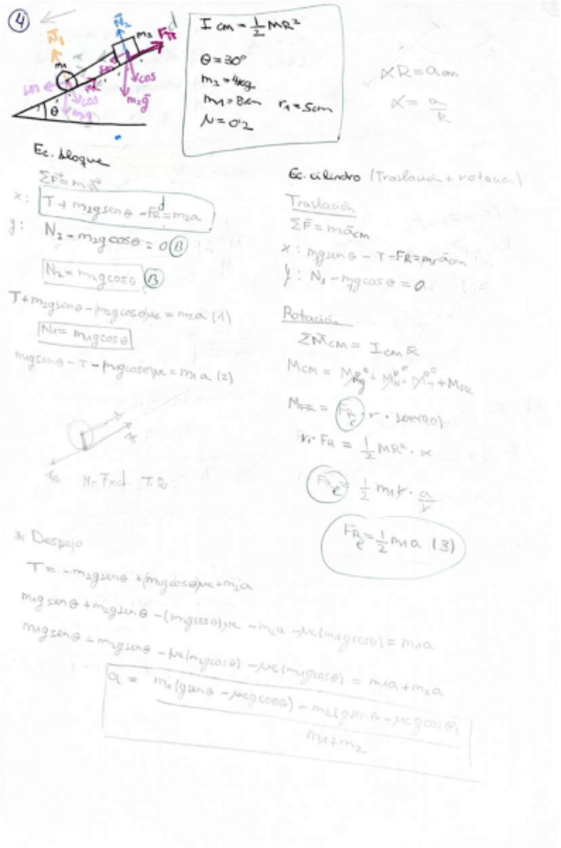 4
I cm = 1/2 MR²
θ = 30°
m₂ = 4kg
m₁ = 8
r₁ = 5cm
N = 0'2
αR = acm
α = a/R
N₁
N₂
m₂
m₁
FR
d
cos
cos
m₂g
θ
Ec. bloque
ΣF = ma
x: T + m₂gsenθ - FRd = m₂a
y: N₂ - m₂gcosθ = 0 (B)
N₂ = m₂gcosθ (B)
T + m₂gsenθ - (m₂gcosθ)μc = m₂a (1)
N₁ = m₁gcosθ
m₁gsenθ - T - (m₁gcosθ)μc = m₁a (2)
Ec. cilindro (Traslación + rotación)
Traslación
ΣF = macm
x: mgsenθ - T - FR = m₁acm
y: N₁ - mgcosθ = 0
Rotación
ΣMCM = Icm α
MCM = Mmg + MN + MT + MFR
MFR = FRe · r · sen(90)
r · FR = 1/2 MR² · α
FRe = 1/2 m₁r · a/r
FRe = 1/2 m₁a (3)
* Despejo
T = -m₂gsenθ + (m₂gcosθ)μc + m₂a
m₁gsenθ + m₂gsenθ - (m₂gcosθ)μc - m₂a - μc(m₁gcosθ) = m₁a
m₁gsenθ + m₂gsenθ - μc(m₂gcosθ) - μc(m₁gcosθ) = m₁a + m₂a
a = m₁(gsenθ - μcgcosθ) + m₂(gsenθ - μcgcosθ)
m₁ + m₂